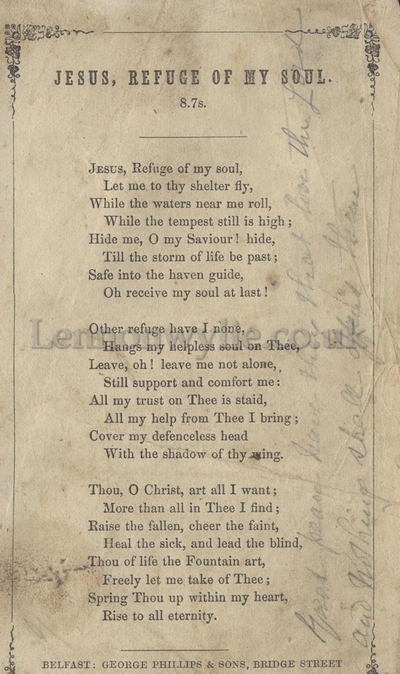 JESUS, REFUGE OF MY SOUL.
8.7s.
JESUS, Refuge of my soul,
Let me to thy shelter fly,
While the waters near me roll,
While the tempest still is high;
Hide me, O my Saviour! hide,
Till the storm of life be past;
Safe into the haven guide,
Oh receive my soul at last!
Other refuge have I none,
Hangs my helpless soul on Thee,
Leave, oh! leave me not alone,
Still support and comfort me:
All my trust on Thee is staid,
All my help from Thee I bring;
Cover my defenceless head
With the shadow of thy wing.
Thou, O Christ, art all I want;
More than all in Thee I find;
Raise the fallen, cheer the faint,
Heal the sick, and lead the blind,
Thou of life the Fountain art,
Freely let me take of Thee;
Spring Thou up within my heart,
Rise to all eternity.
BELFAST: GEORGE PHILLIPS & SONS, BRIDGE STREET
Great peace have they that love thy Law
and nothing shall offend them